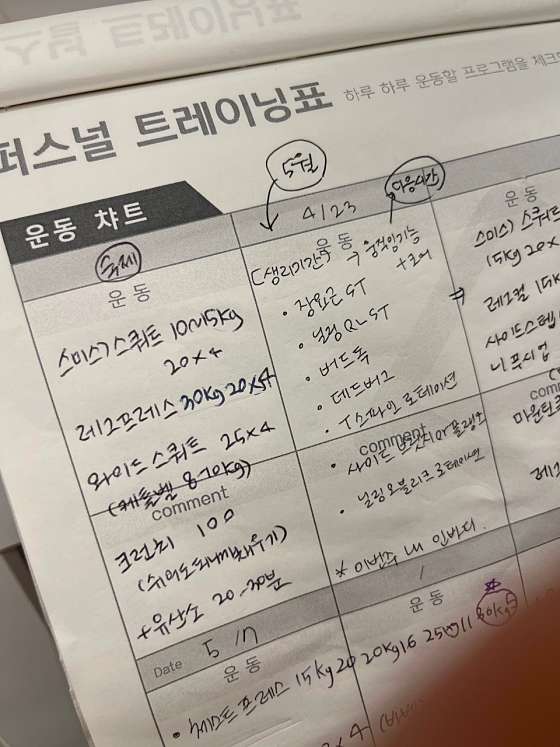 퍼스널 트레이닝표
하루 하루 운동할 프로그램을 체크
운동 챠트
5월
4/23
다음시간
숙제
운동
스미스) 스쿼트 10~15kg
20×4
레그프레스 30kg 20×5
와이드 스쿼트 25×4
(케틀벨 8~12kg)
comment
크런치 100
+유산소 20~30분
운동
(생리기간)
→ 움직임기능
+코어
• 장요근 ST
• 닐링 QL ST
• 버드독
• 데드버그
• T스파인 로테이션
comment
• 사이드
• 닐링 오블리크 로테이션
* 이번주 내 인바디.
운동
스미스) 스쿼트
15kg 20×
레그컬 15k
사이드스텝
니 푸시업
com
마운틴
레그
Date 5/7
운동
/
운동
• 체스트 프레스 15kg 20 20kg 16 25kg 11 30kg
×4